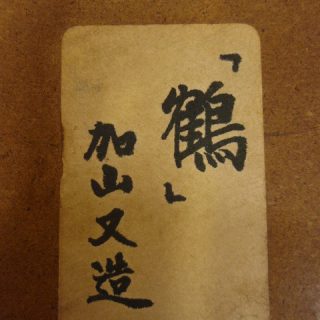 「鶴」
加山又造